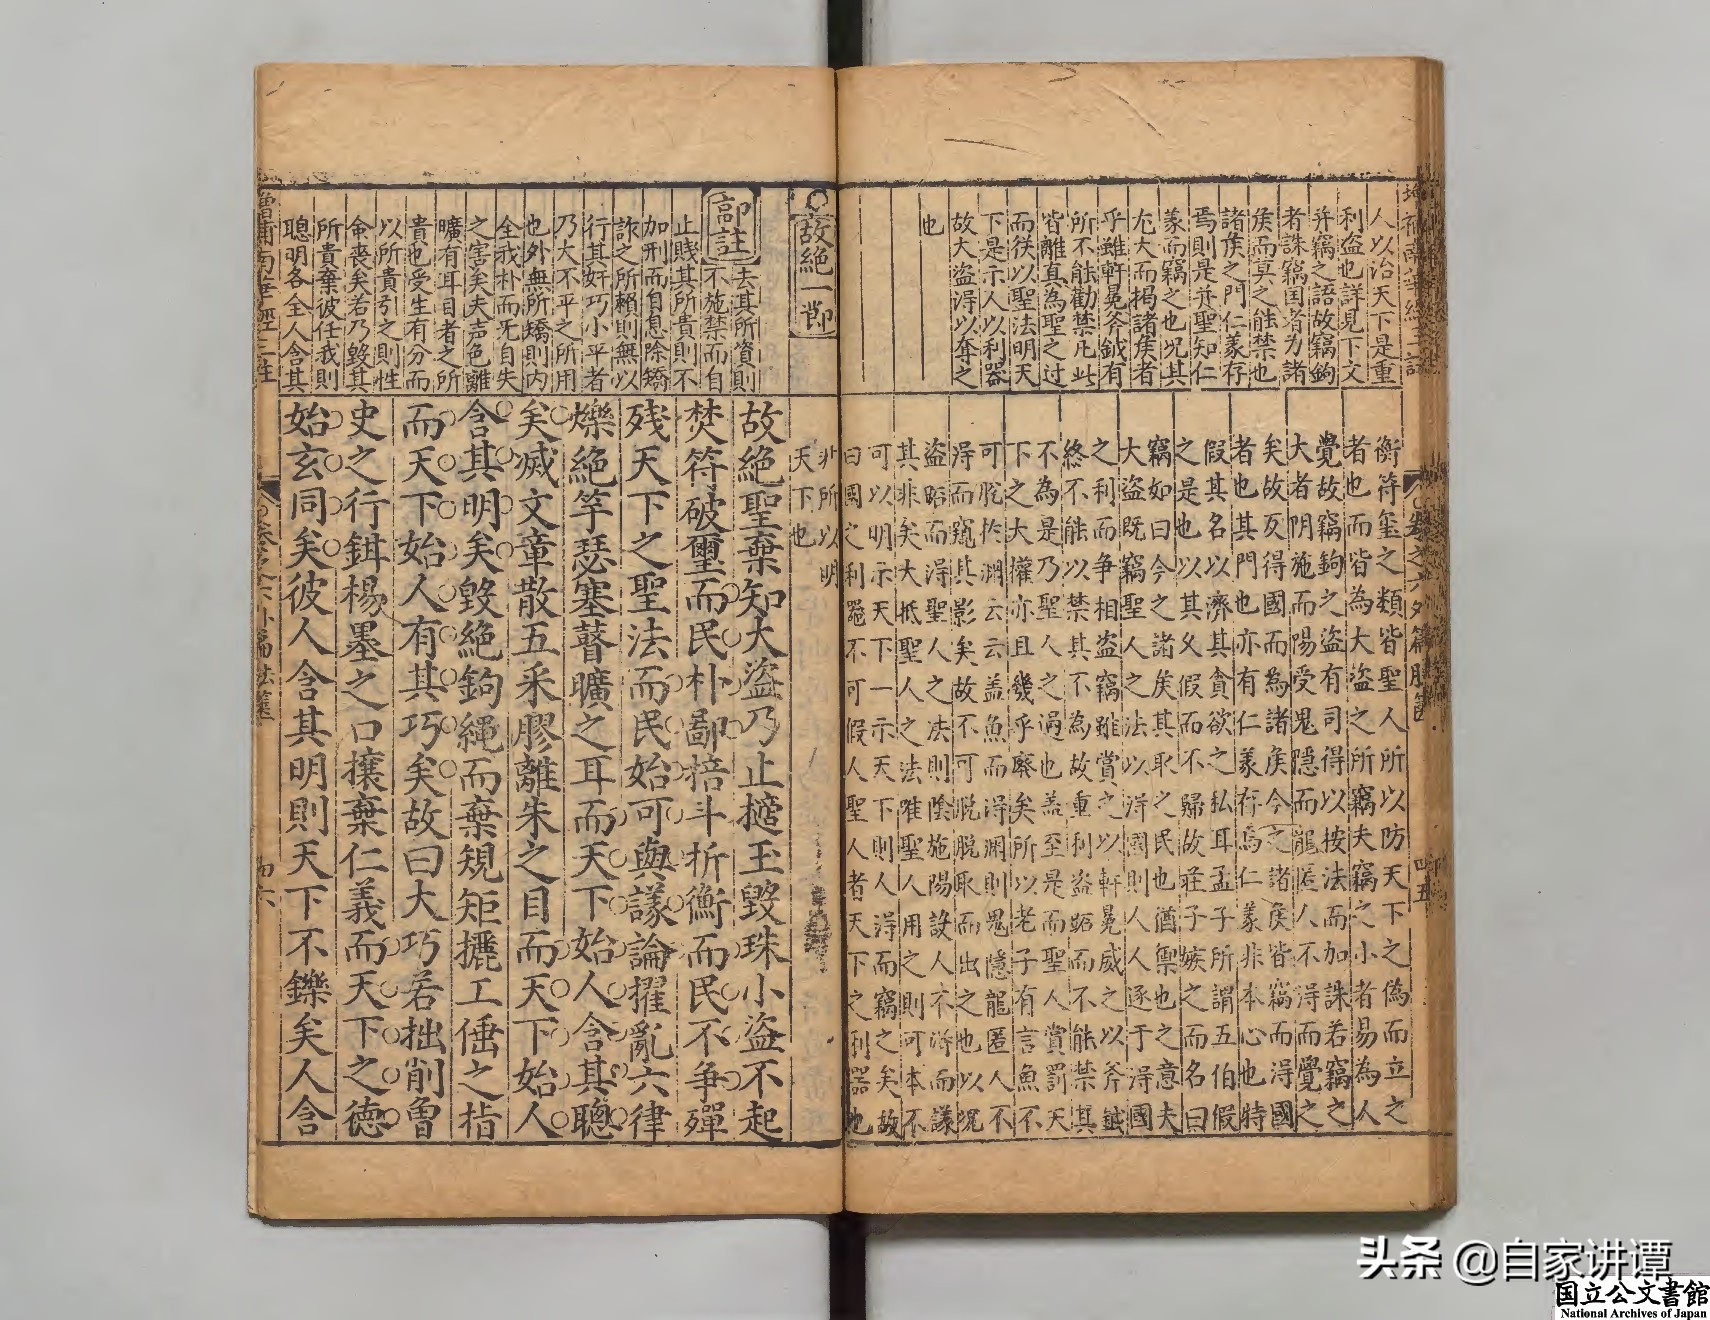 人以治天下是重
利盗也詳見下文
并竊之語故竊鉤
者誅竊国者为諸
侯而莫之能禁也
諸侯之門仁義存
焉則是并聖知仁
義而竊之也况其
尤大而揭諸侯者
乎雖軒冕斧鉞有
所不能勸禁凡此
皆離真為聖之过
而後以聖法明天
下是示人以利器
故大盗得以奪之
也
衡符璽之類皆聖人所以防天下之偽而立之
者也而皆為大盗之所竊夫竊之小者易為人
覺故竊鉤之盗有司得以按法而加誅若竊之
大者阴施而陽受鬼隱而龍匿人不得而覺之
矣故反得國而為諸侯今之諸侯皆竊而得國
者也其門也亦有仁義存焉仁義非本心也特
假其名以濟其貪欲之私耳孟子所謂五伯假
之是也以其久假而不歸故莊子嫉之而名曰
竊如曰今之諸侯其取之民也猶禦也之意夫
大盗既竊聖人之法以得國則人人逐于得國
之利而争相盗竊雖賞之以軒冕威之以斧鉞
終不能以禁其不為故重利盗跖而不能禁其
不為是乃聖人之過也盖至是而聖人賞罰天
下之大權亦且幾乎廢矣所以老子有言魚不
可脱於渊云云盖魚而得渊則鬼隱龍匿人不
得而窺其影矣故不可脱脱取而出之也以况
盗跖而得聖人之法則陰施陽設人不得而議
其非矣大抵聖人之法唯聖人用之則可本不
可以明示天下一示天下則人得而竊之矣故
曰國之利器不可假人聖人者天下之利器也
非所以明
天下也
故絶一節
郭註
去其所資則
不施禁而自
止賤其所貴則不
加刑而自息除矯
詐之所賴則無以
行其奸巧小平者
乃大不平之所用
也外無所矯則内
全我朴而无自失
之害矣夫声色離
曠有耳目者之所
貴也受生有分而
以所貴引之則性
命喪矣若乃毀其
所貴棄彼任我則
聰明各全人含其
故絶聖棄知大盗乃止擿玉毀珠小盗不起
焚符破璽而民朴鄙掊斗折衡而民不争殫
残天下之聖法而民始可與議論擢亂六律
爍絶竽瑟塞瞽曠之耳而天下始人含其聰
矣滅文章散五采膠離朱之目而天下始人
含其明矣毀絶鉤繩而棄規矩攦工倕之指
而天下始人有其巧矣故曰大巧若拙削曽
史之行鉗楊墨之口攘棄仁義而天下之德
始玄同矣彼人含其明則天下不鑠矣人含
头条 @自家讲谭
国立公文書館
National Archives of Japan